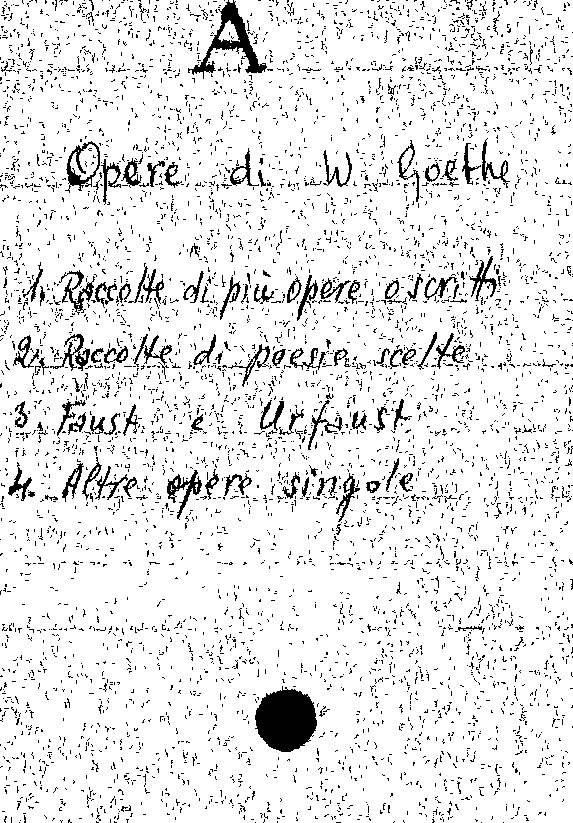 A
Opere di W. Goethe
1. Raccolte di più opere o scritti
2. Raccolte di poesie scelte
3. Faust e Urfaust
4. Altre opere singole